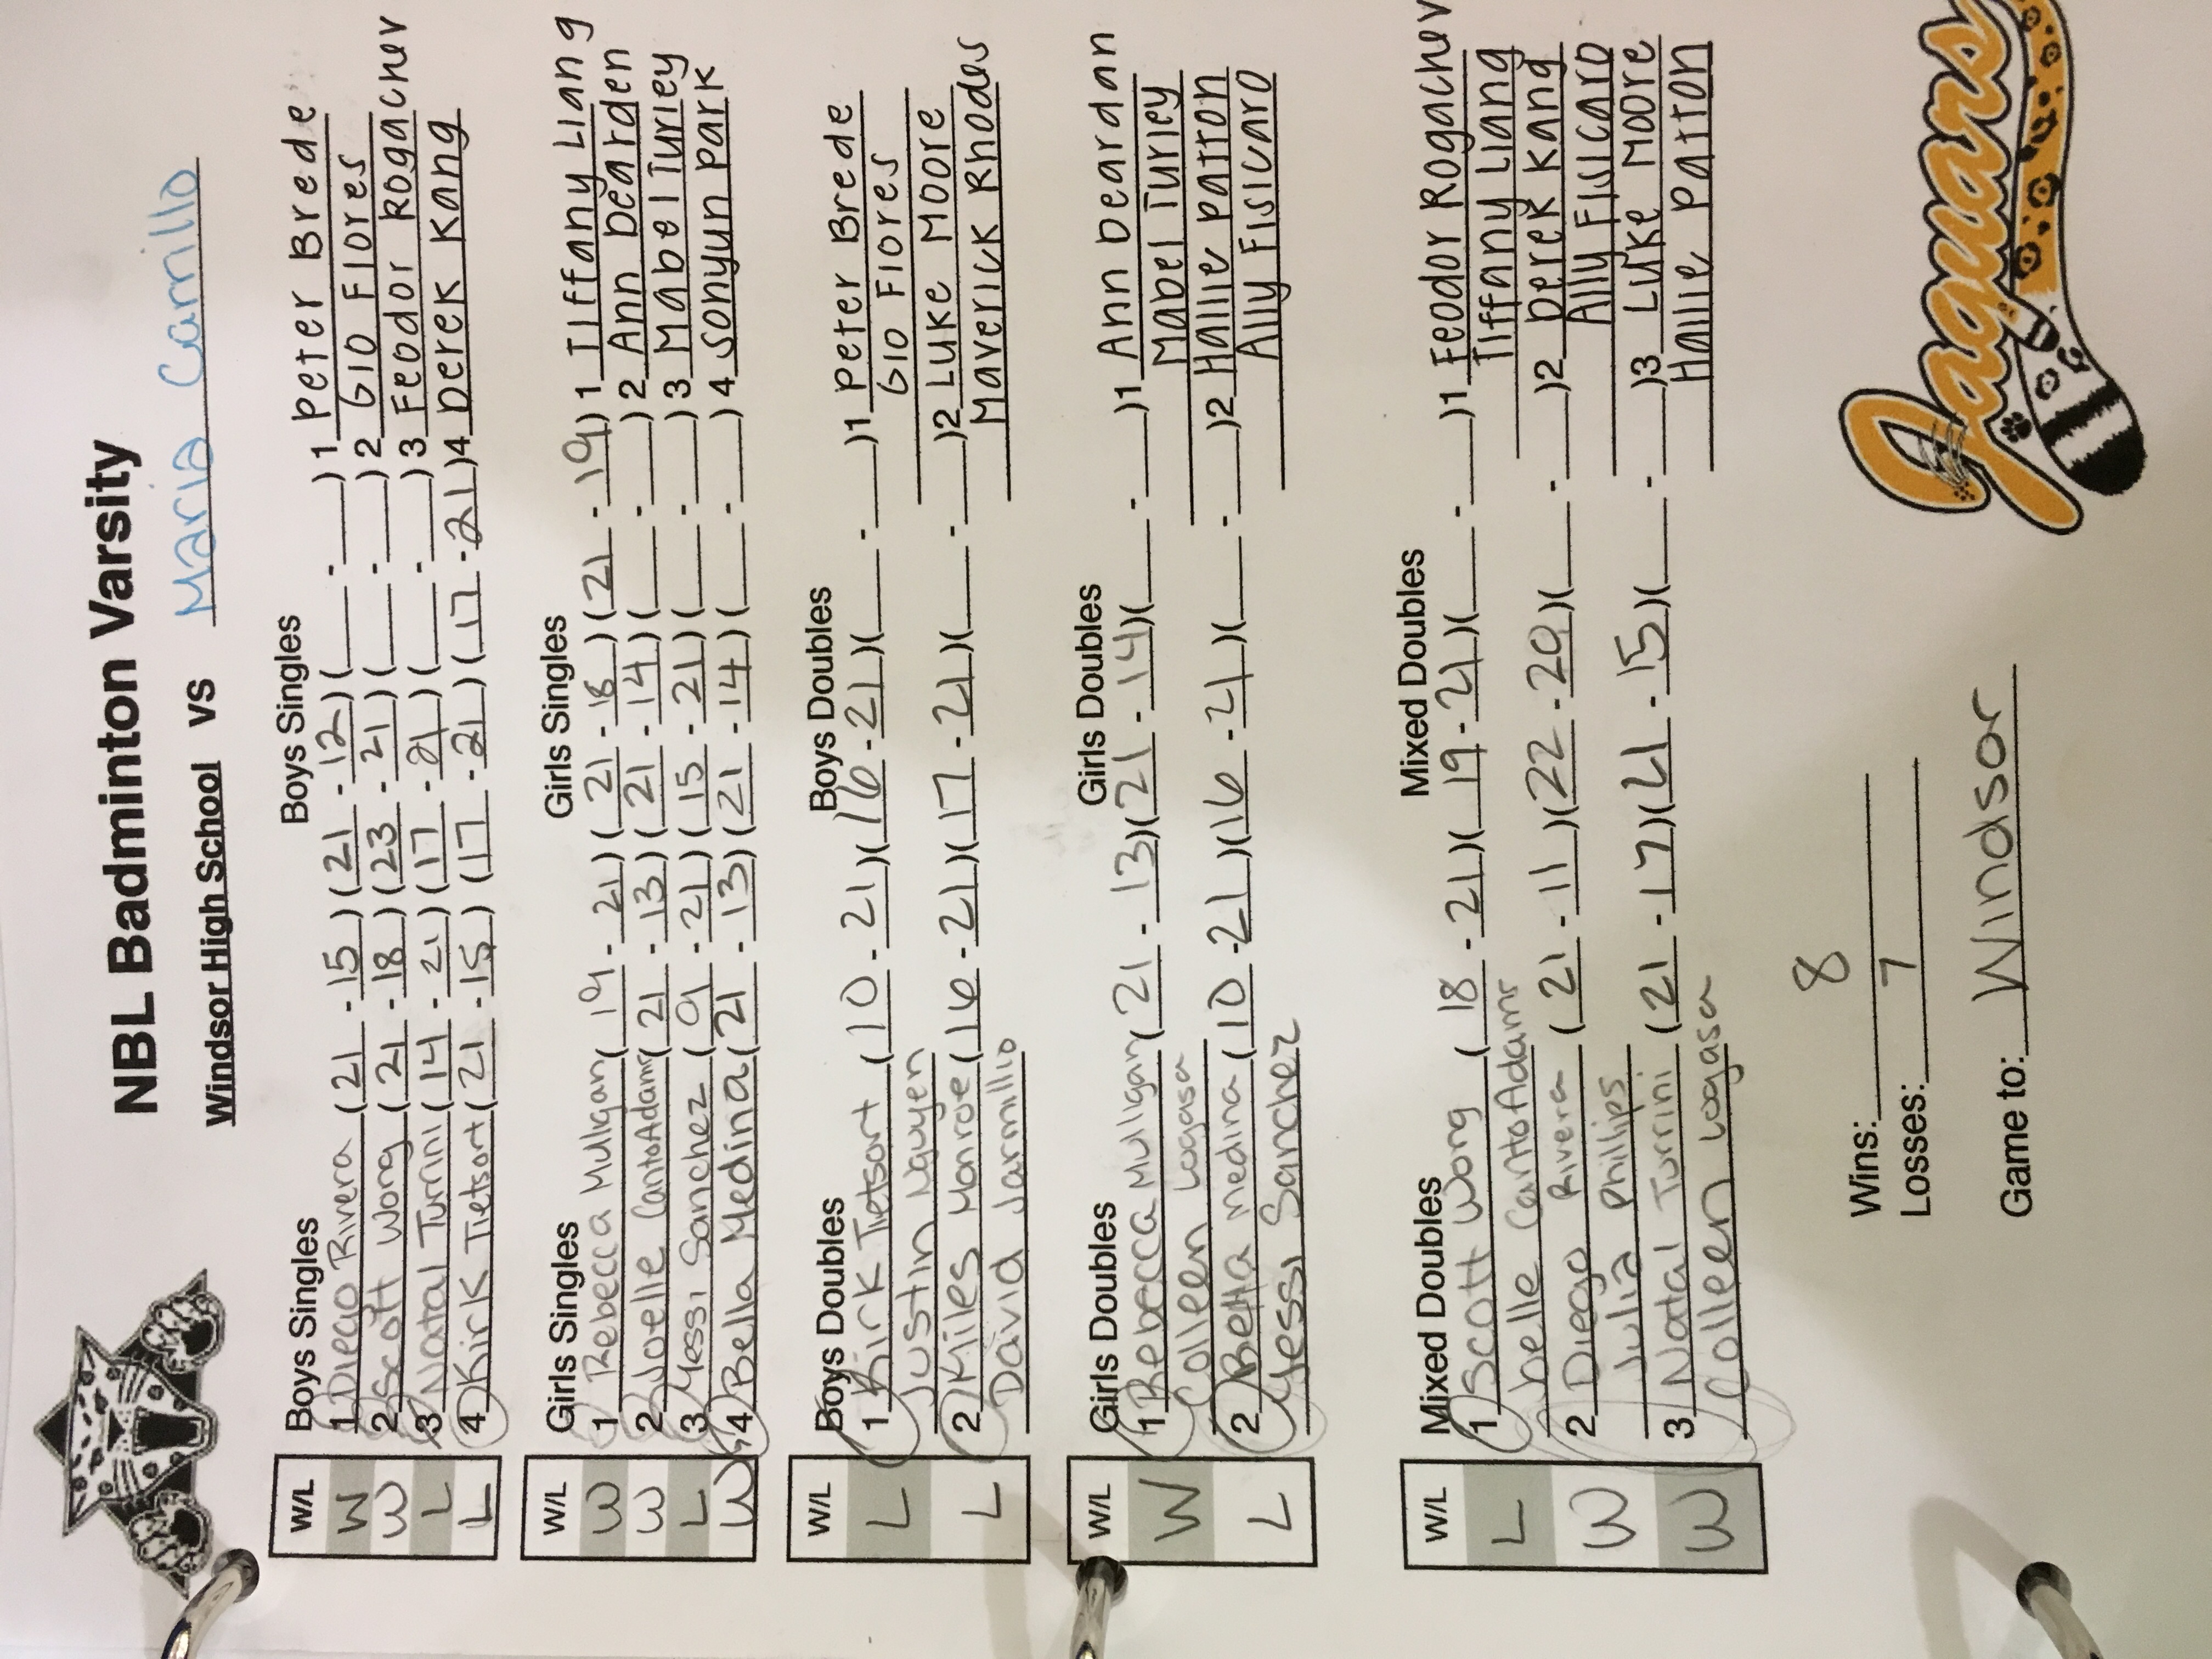 NBL Badminton Varsity
Windsor High School vs Maria Carrillo
W/L Boys Singles Boys Singles
W 1 Diego Rivera (21 - 15) (21 - 12) (___ - ___) 1 Peter Brede
W 2 Scott Wong (21 - 18) (23 - 21) (___ - ___) 2 Gio Flores
L 3 Natal Turrini (14 - 21) (17 - 21) (___ - ___) 3 Feodor Rogachev
L 4 Kirk Tietsort (21 - 15) (17 - 21) (17 - 21) 4 Derek Kang
W/L Girls Singles Girls Singles
W 1 Rebecca Mulligan (19 - 21) (21 - 18) (21 - 19) 1 Tiffany Liang
W 2 Joelle CantoAdams (21 - 13) (21 - 14) (___ - ___) 2 Ann Dearden
L 3 Yessi Sanchez (9 - 21) (15 - 21) (___ - ___) 3 Mabel Turley
W 4 Bella Medina (21 - 13) (21 - 14) (___ - ___) 4 Sonyun Park
W/L Boys Doubles Boys Doubles
L 1 Kirk Tietsort (10 - 21) (16 - 21) (___ - ___) 1 Peter Brede
Justin Nguyen Gio Flores
L 2 Miles Monroe (16 - 21) (17 - 21) (___ - ___) 2 Luke Moore
David Jarmillio Maverick Rhodes
W/L Girls Doubles Girls Doubles
W 1 Rebecca Mulligan (21 - 13) (21 - 14) (___ - ___) 1 Ann Deardan
Colleen Logasa Mabel Turley
L 2 Bella Medina (10 - 21) (16 - 21) (___ - ___) 2 Hallie Patton
Yessi Sanchez Ally Fisicaro
W/L Mixed Doubles Mixed Doubles
L 1 Scott Wong (18 - 21) (19 - 21) (___ - ___) 1 Feodor Rogachev
Joelle CantoAdams Tiffany Liang
W 2 Diego Rivera (21 - 11) (22 - 20) (___ - ___) 2 Derek Kang
Julia Phillips Ally Fisicaro
W 3 Natal Turrini (21 - 17) (21 - 15) (___ - ___) 3 Luke Moore
Colleen Logasa Hallie Patton
Wins: 8
Losses: 7
Game to: Windsor
Jaguars